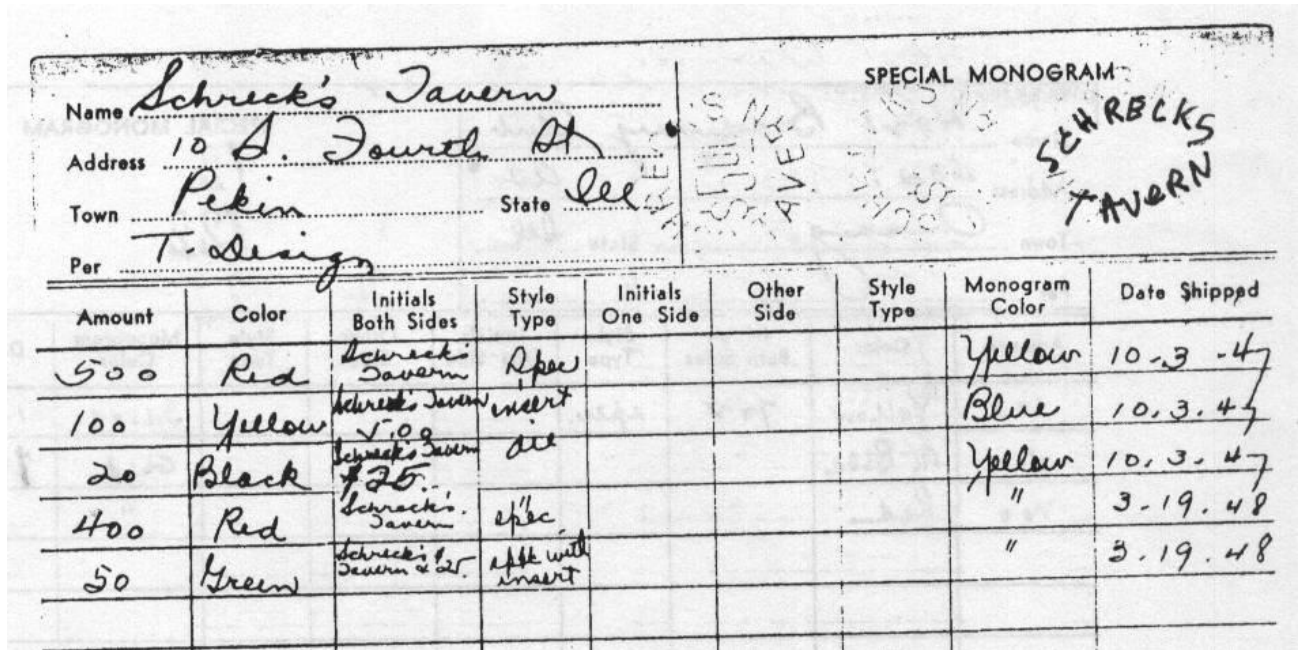 SPECIAL MONOGRAM
Name Schreck's Tavern
SCHRECKS
TAVERN
Address 10 S. Fourth St
Town Pekin State Ill
Per T Design
Amount Color Initials Both Sides Style Type Initials One Side Other Side Style Type Monogram Color Date Shipped
500 Red Schreck's Tavern Spec Yellow 10-3-47
100 Yellow Schreck's Tavern 5.00 insert Blue 10.3.47
20 Black Schreck's Tavern $25. die Yellow 10.3.47
400 Red Schreck's Tavern " spec " 3-19.48
50 Green Schreck's Tavern & 25. with insert " 3.19.48